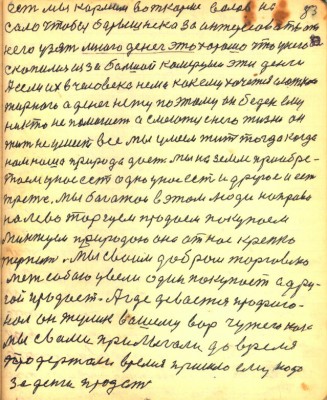 83
сет мы кормили воткорме валов на
сало чтобы барышнека за интересовать от
него узят много денег это хорошо это у него
скопилися за большой
эти денги
А если их в человека нема как ему хочется сладко
жирного а денег нету поэтому он беден ему
никто не поможет а смотит у него жизни он
жит не умеит все мы умеем жит тогда когда
нам наша природа дает. мы на земли приобре-
таем у нас ест одно у нас ест и другое и ест
трете. мы багатои в этом люди направо
налево торгуем продаем покупаем
природою она от нас крепко
терпит. Мы своим добром торговлю
меж собою увели один покупает а дру-
гой продает. А где девается профиго-
нал он жулик вашему вор чужего
мы с вами при
до время
продержалы время пришло ему надо
За денги продат